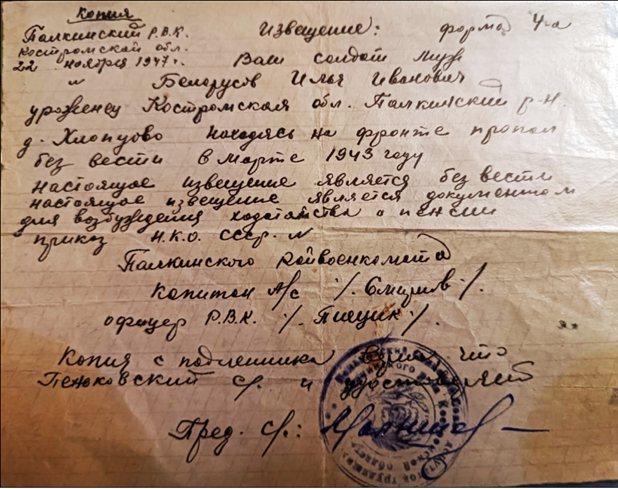 копия
Палкинский Р.В.К. Извещение: форма 4-а
Костромской обл.
22 ноября 1947 г. Ваш солдат муж
Белорусов Илья Иванович
уроженец Костромская обл. Палкинский р-н.
д. Хлопцово находясь на фронте пропал
без вести в марте 1943 году
настоящее извещение является без вести
настоящее извещение является документом
для возбуждения ходатайства о пенсии
приказ Н.К.О. СССР. №
Палкинского Райвоенкомата
Капитан А/с /. Смирнов /.
офицер Р.В.К. /. Пищик /.
Копия с подленника верна что
с/. и удостоверяет
Пред. с/.: